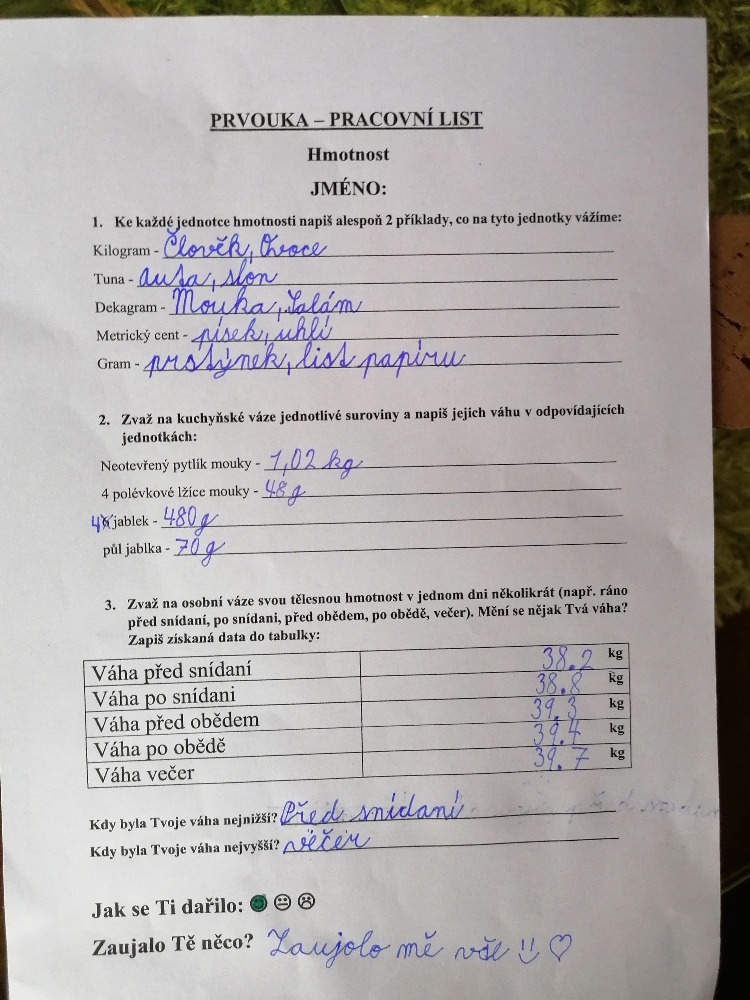 PRVOUKA – PRACOVNÍ LIST
Hmotnost
JMÉNO:
1. Ke každé jednotce hmotnosti napiš alespoň 2 příklady, co na tyto jednotky vážíme:
Kilogram - Člověk, Ovoce
Tuna - auta, slon
Dekagram - Mouka, Salám
Metrický cent - písek, uhlí
Gram - prstýnek, list papíru
2. Zvaž na kuchyňské váze jednotlivé suroviny a napiš jejich váhu v odpovídajících
jednotkách:
Neotevřený pytlík mouky - 1,02 kg
4 polévkové lžíce mouky - 48 g
4 jablek - 480 g
půl jablka - 70 g
3. Zvaž na osobní váze svou tělesnou hmotnost v jednom dni několikrát (např. ráno
před snídaní, po snídani, před obědem, po obědě, večer). Mění se nějak Tvá váha?
Zapiš získaná data do tabulky:
Váha před snídaní 38.2 kg
Váha po snídani 38.8 kg
Váha před obědem 39.3 kg
Váha po obědě 39.4 kg
Váha večer 39.7 kg
Kdy byla Tvoje váha nejnižší? Před snídaní
Kdy byla Tvoje váha nejvyšší? věčer
Jak se Ti dařilo:
Zaujalo Tě něco? Zaujolo mě vše